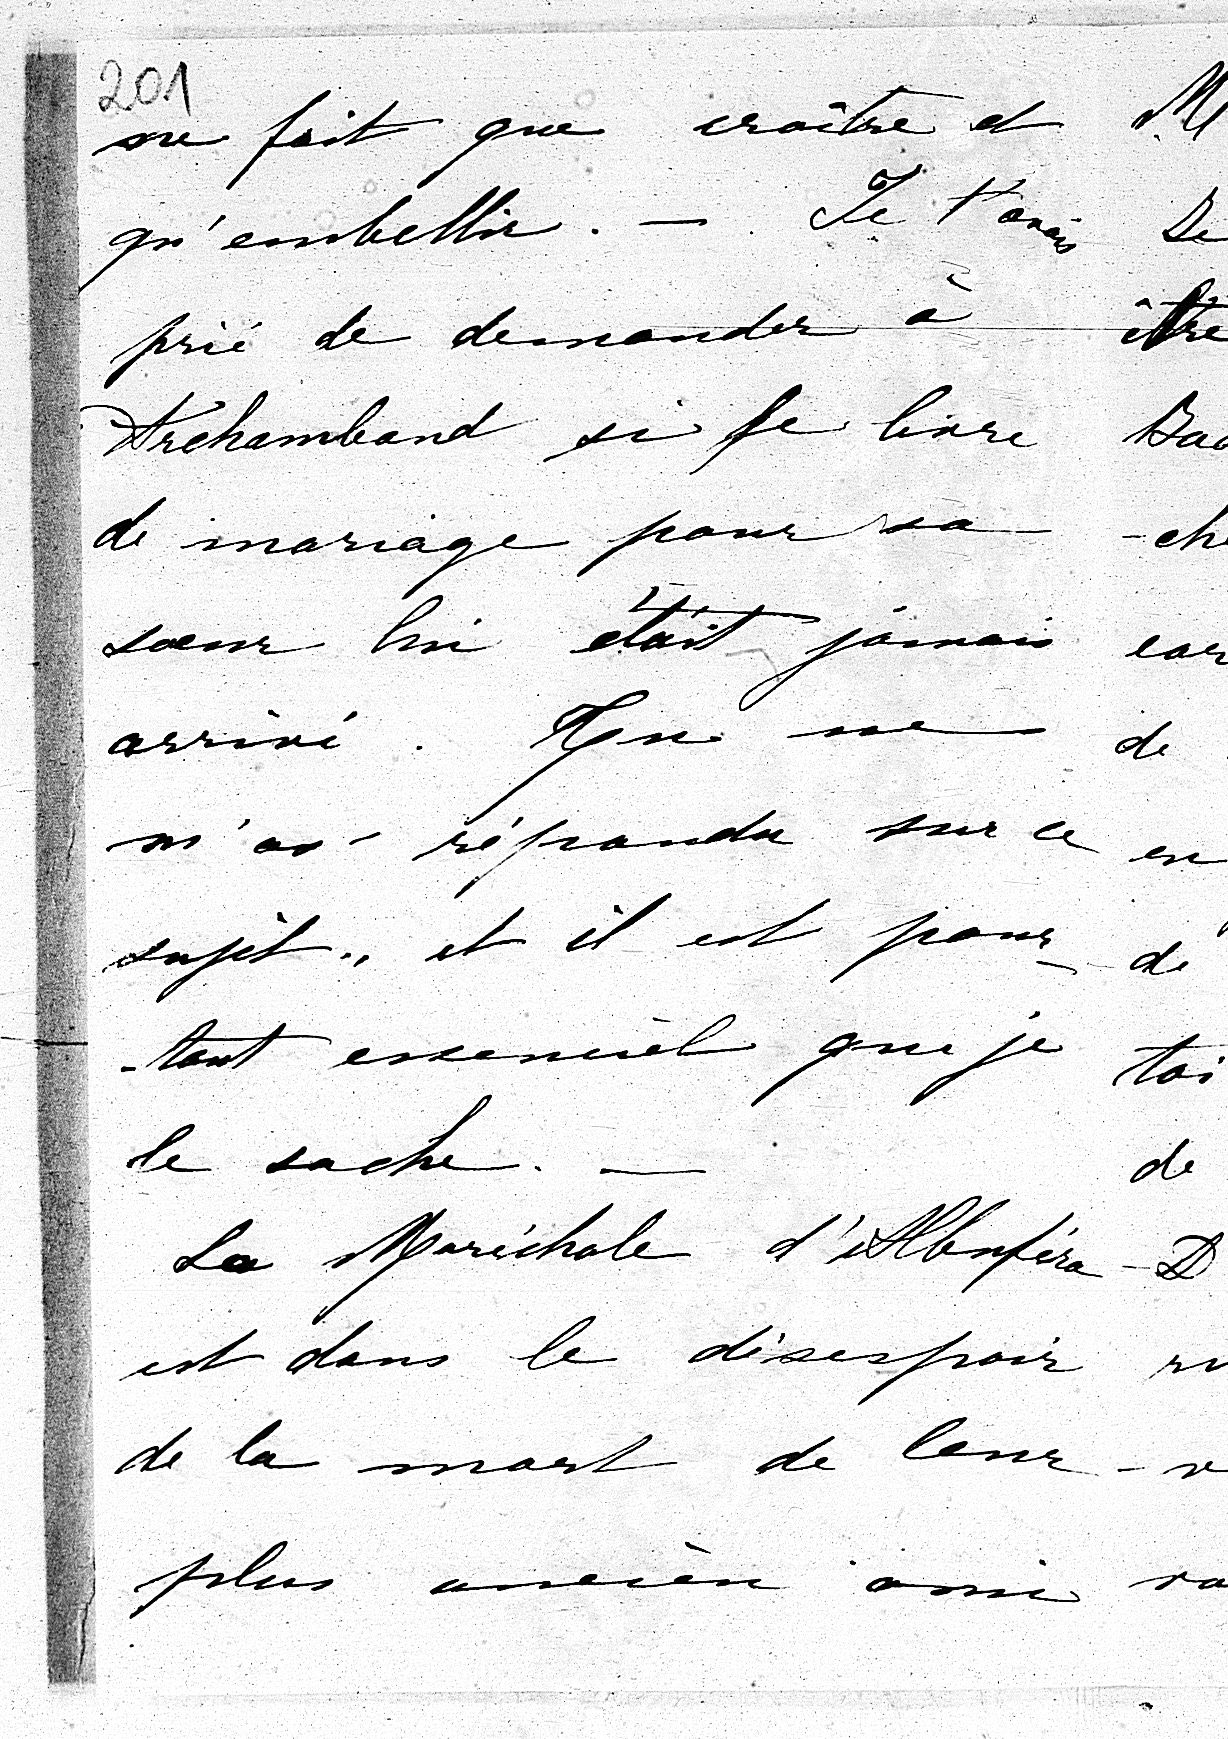 201
ne fait que croître et
qu'embellir. — Je t'avais
prié de demander à
Archambaud si le livre
de mariage pour sa
sœur lui était jamais
arrivé. Tu ne
m'as répondu sur ce
sujet., et il est pour-
-tant essenciel que je
le sache. —
La Maréchale d'Albuféra
est dans le désespoir
de la mort de leur
plus ancien ami
M
De
être
Bad
-che
car
de
en
de
toi
de
D